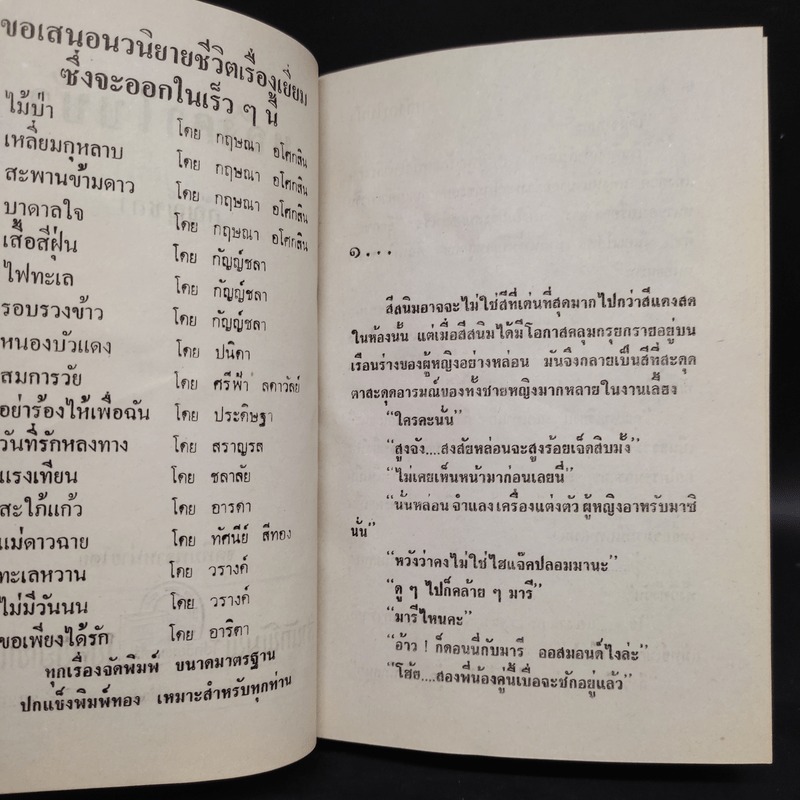 ขอเสนอนวนิยายชีวิตเรื่องเยี่ยม
ซึ่งจะออกในเร็ว ๆ นี้
ไม้ป่า โดย กฤษณา อโศกสิน
เหลี่ยมกุหลาบ โดย กฤษณา อโศกสิน
สะพานข้ามดาว โดย กฤษณา อโศกสิน
บาดาลใจ โดย กฤษณา อโศกสิน
เสื้อสีฝุ่น โดย กัญญ์ชลา
ไฟทะเล โดย กัญญ์ชลา
รอบรวงข้าว โดย กัญญ์ชลา
หนองบัวแดง โดย ปนิตา
สมการวัย โดย ศรีฟ้า ลดาวัลย์
อย่าร้องไห้เพื่อฉัน โดย ประดิษฐา
วันที่รักหลงทาง โดย สราญรส
แรงเทียน โดย ชลาลัย
สะใภ้แก้ว โดย อารดา
แม่ดาวฉาย โดย ทัศนีย์ สีทอง
ทะเลหวาน โดย วรางค์
ไม่มีวันนน โดย วรางค์
ขอเพียงได้รัก โดย อาริตา
ทุกเรื่องจัดพิมพ์ ขนาดมาตรฐาน
ปกแข็งพิมพ์ทอง เหมาะสำหรับทุกท่าน
๑...
สีสนิมอาจจะไม่ใช่สีที่เด่นที่สุดมากไปกว่าสีแดงสด
ในห้องนั้น แต่เมื่อสีสนิมได้มีโอกาสคลุมกรุยกรายอยู่บน
เรือนร่างของผู้หญิงอย่างหล่อน มันจึงกลายเป็นสีที่สะดุด
ตาสะดุดอารมณ์ของทั้งชายหญิงมากหลายในงานเลี้ยง
“ใครคะนั้น”
“สูงจัง....สงสัยหล่อนจะสูงร้อยเจ็ดสิบมั้ง”
“ไม่เคยเห็นหน้ามาก่อนเลยนี่”
“นั่นหล่อนจำแลงเครื่องแต่งตัวผู้หญิงอาหรับมาซิ
นั่น”
“หวังว่าคงไม่ใช่ไฮแจ๊คปลอมมานะ”
“ดู ๆ ไปก็คล้าย ๆ มารี”
“มารีไหนคะ”
“อ้าว ! ก็ดอนนี่กับมารี ออสมอนด์ไงล่ะ”
“โฮ้ย....สองพี่น้องคู่นี้เบื่อจะชักอยู่แล้ว”